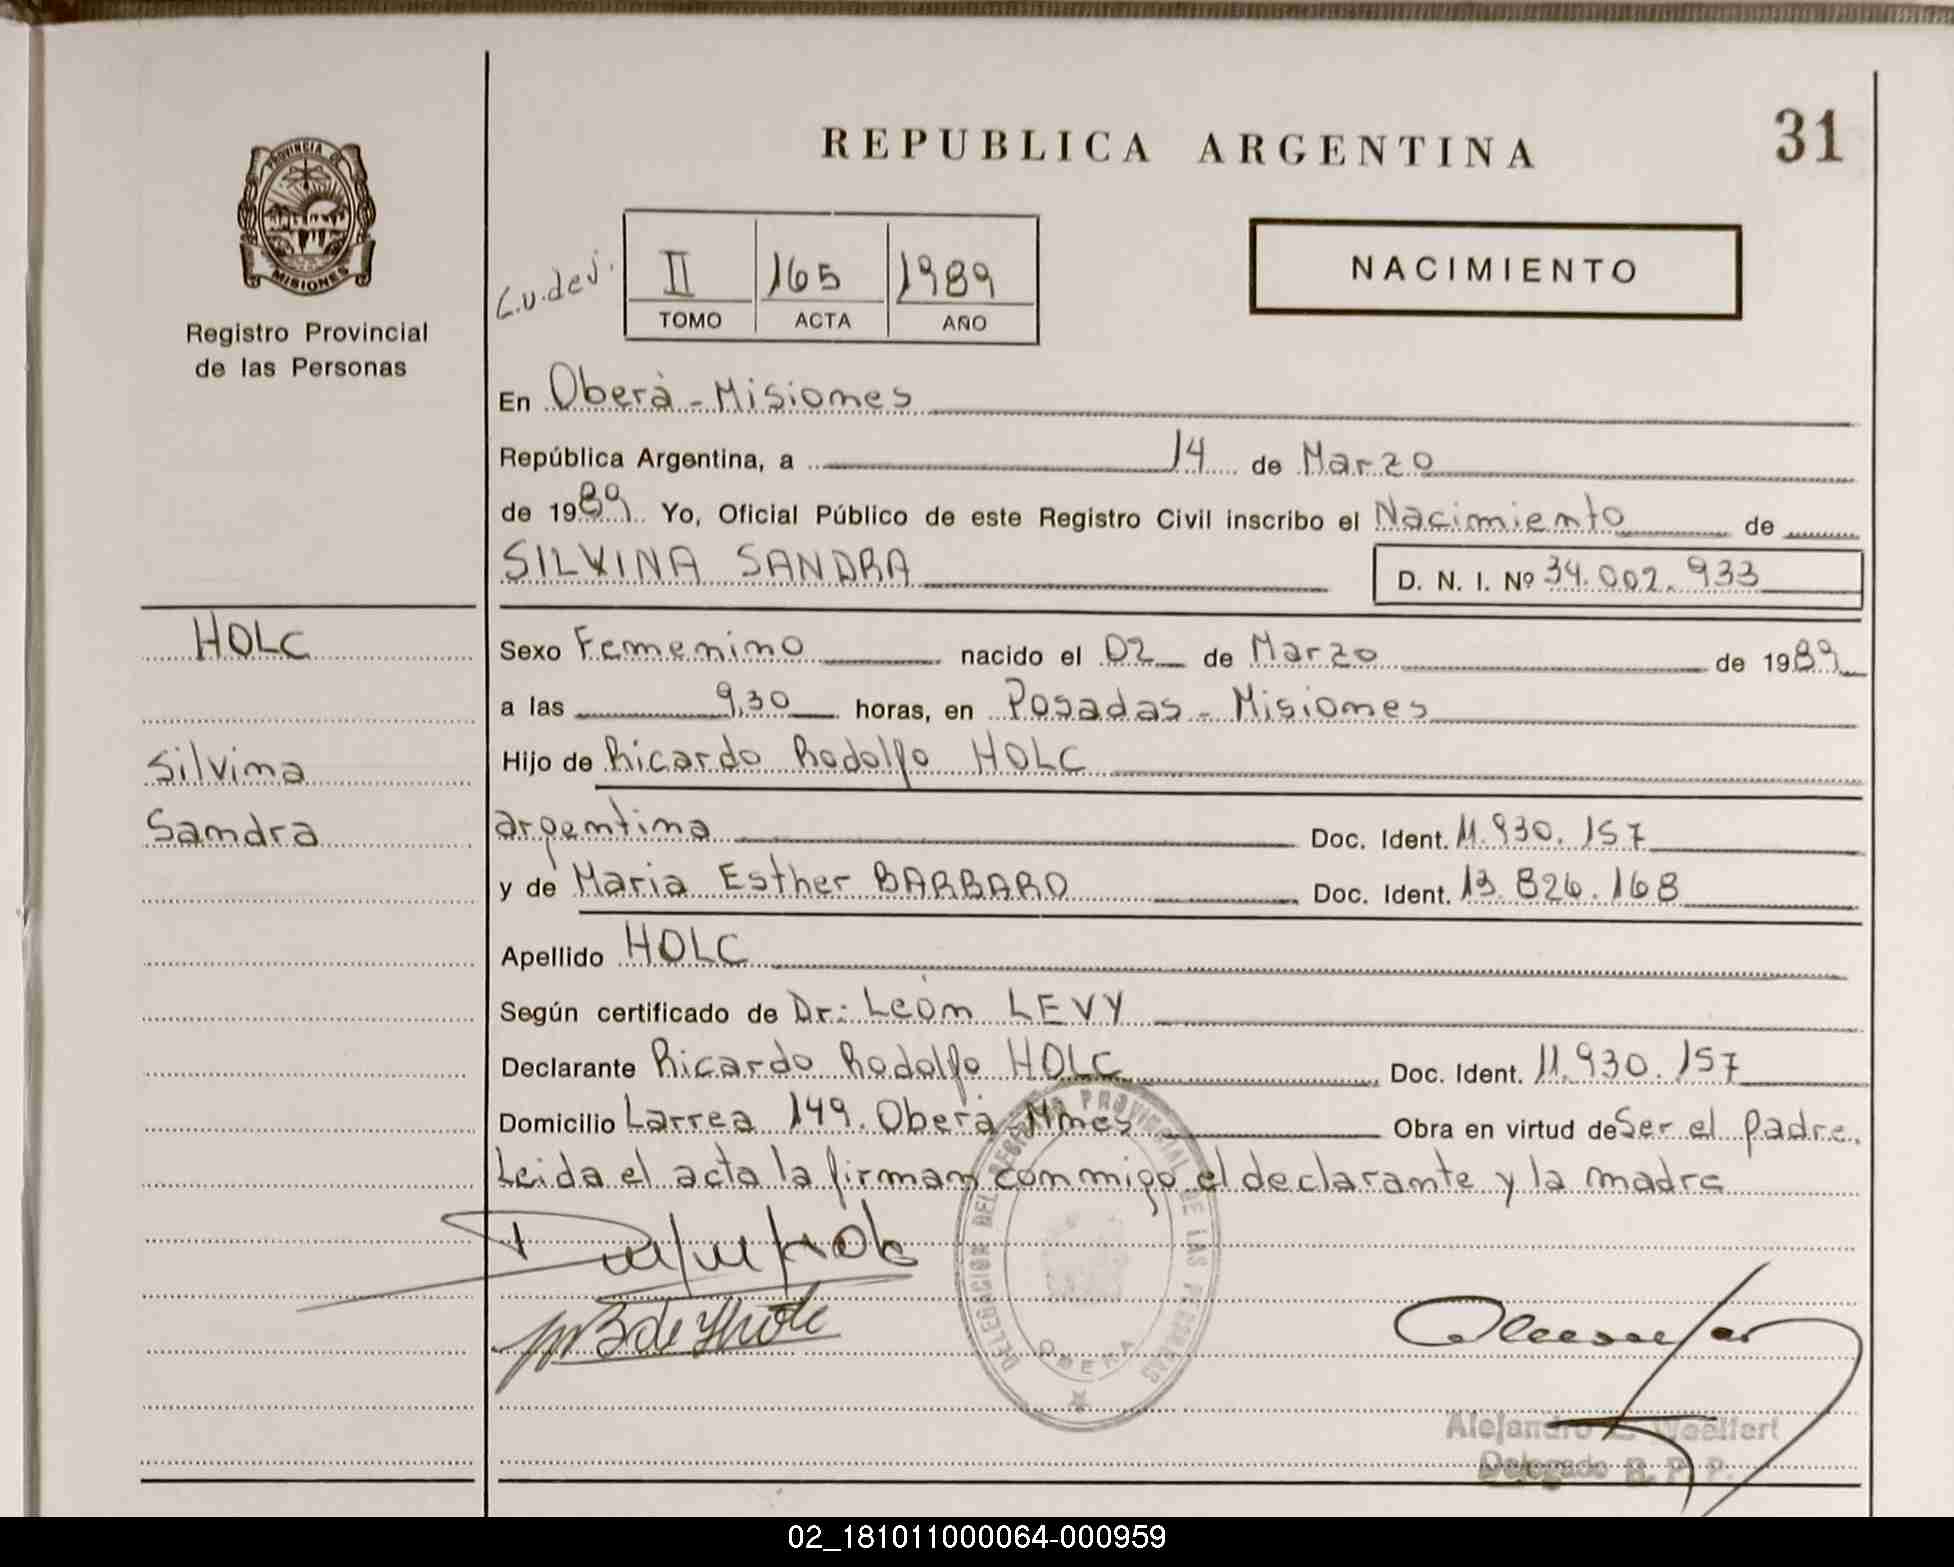 REPUBLICA ARGENTINA
31
PROVINCIA DE
MISIONES
Registro Provincial
de las Personas
II 165 1989
TOMO ACTA AÑO
NACIMIENTO
En Oberà - Misiones
República Argentina, a 14 de Marzo
de 1989 Yo, Oficial Público de este Registro Civil inscribo el Nacimiento de
SILVINA SANDRA D. N. I. Nº 34.002.933
HOLC
Silvina
Sandra
Sexo Femenino nacido el 02 de Marzo de 1989
a las 9,30 horas, en Posadas - Misiones
Hijo de Ricardo Rodolfo HOLC
argentina Doc. Ident. 11.930.157
y de Maria Esther BARBARO Doc. Ident. 13.826.168
Apellido HOLC
Según certificado de Dr: León LEVY
Declarante Ricardo Rodolfo HOLC Doc. Ident. 11.930.157
Domicilio Larrea 149. Oberà Mnes Obra en virtud de Ser el padre.
Leida el acta la firman conmigo el declarante y la madre
DELEGACION DEL REGISTRO PROVINCIAL DE LAS PERSONAS
OBERA
Alejandro E. Woelfert
Delegado R. P. P.
02_181011000064-000959